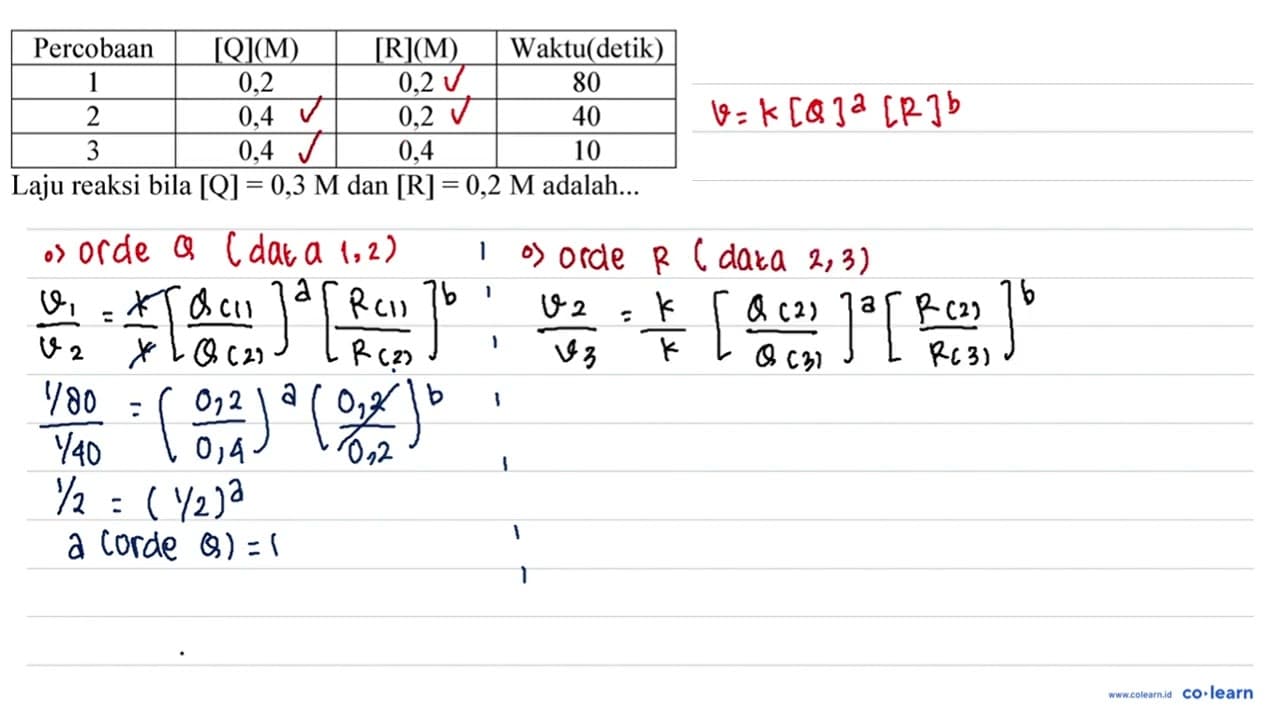 Percobaan [Q](M) [R](M) Waktu(detik)
1 0,2 0,2 ✓ 80
2 0,4 ✓ 0,2 ✓ 40
3 0,4 ✓ 0,4 10
v = k [Q]^a [R]^b
Laju reaksi bila [Q] = 0,3 M dan [R] = 0,2 M adalah...
o> orde Q (data 1,2)
v1/v2 = k/k [Q(1)/Q(2)]^a [R(1)/R(2)]^b
1/80 / 1/40 = (0,2/0,4)^a (0,2/0,2)^b
1/2 = (1/2)^a
a (orde Q) = 1
o> orde R (data 2,3)
v2/v3 = k/k [Q(2)/Q(3)]^a [R(2)/R(3)]^b
www.colearn.id co·learn